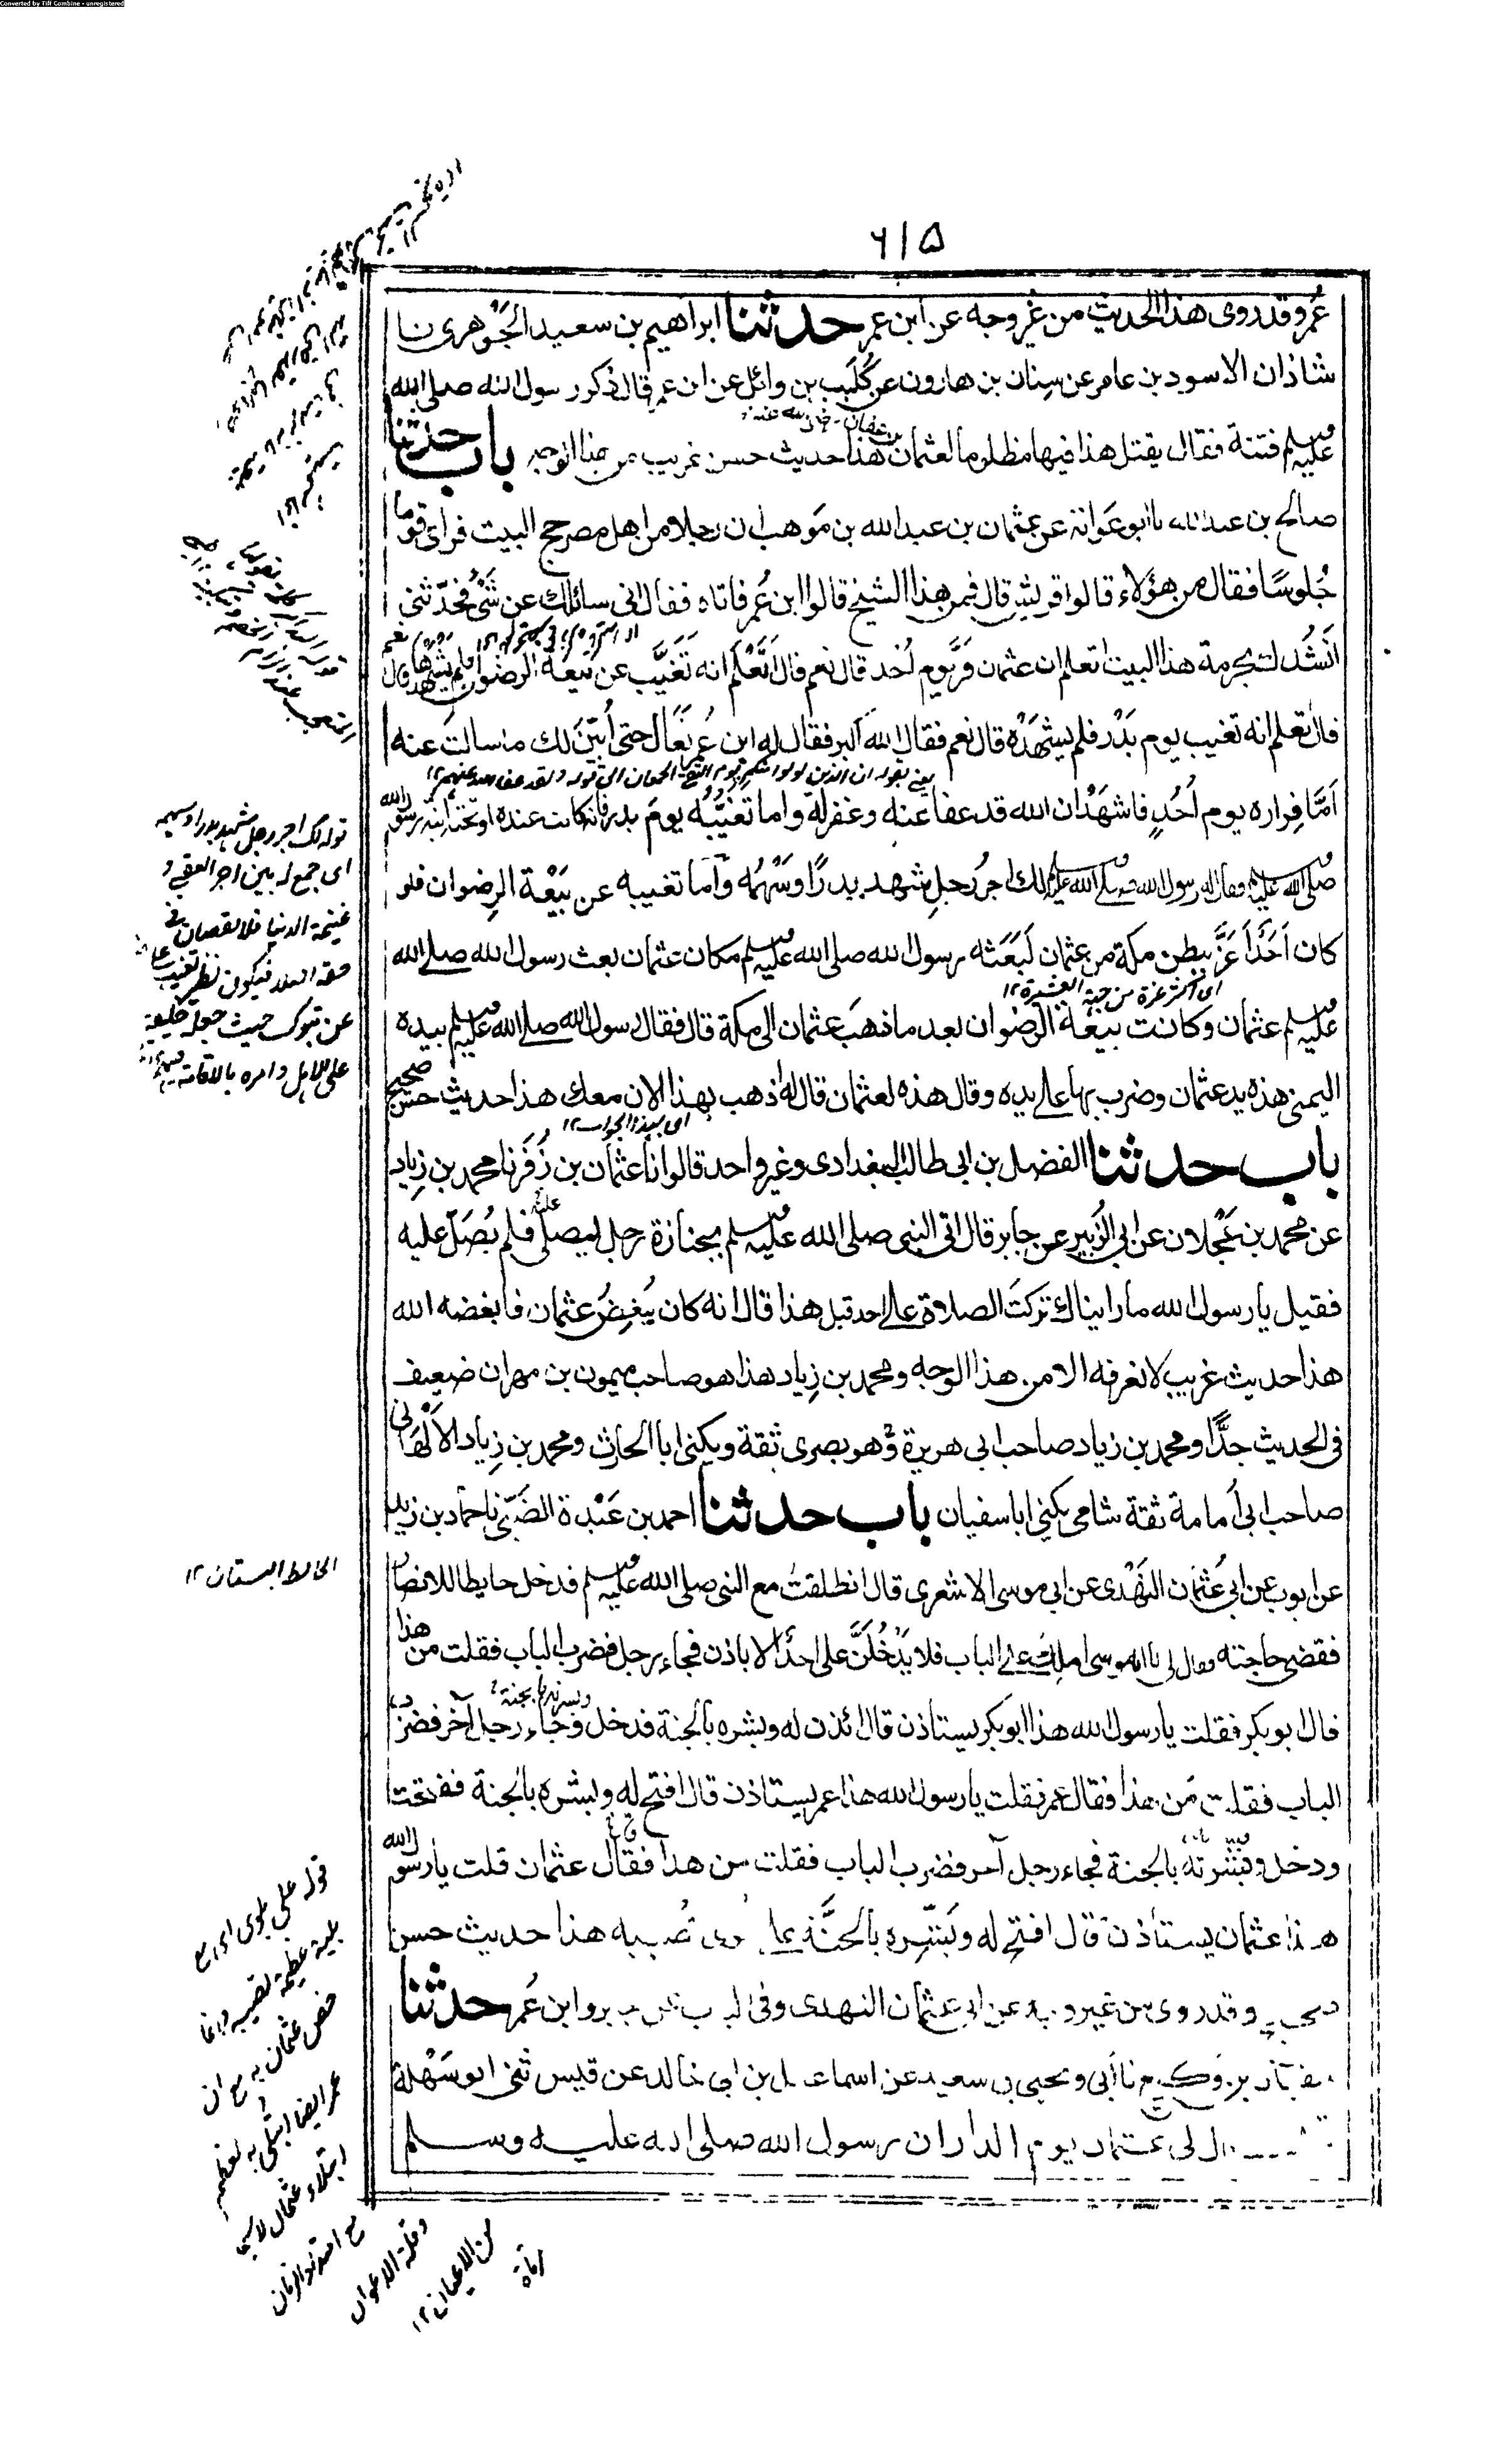 Converted by Tiff Combine - unregistered
۶۱۵
عُمر وقد روى هذا الحديث من غير وجه عن ابن عمر حدثنا ابراهيم بن سعيد الجَوهرى نا
شاذان الاسود بن عامر عن سِنان بن هارون عن كُلَيب بن وائل عن ابن عمر قال ذكر رسول الله صلى الله
عليه وسلم فتنة فقال يقتل هذا فيها مظلوما لعثمان بن عفان رضى الله عنه هذا حديث حسن غريب من هذا الوجه باب حدثنا
صالح بن عبد الله نا ابو عَوانة عن عثمان بن عبد الله بن مَوهب ان رجلا من اهل مصر حج البيت فراى قوما
جُلوسًا فقال من هؤلاء قالوا قريش قال فمن هذا الشيخ قالوا ابن عُمر فاتاه فقال انى سائلك عن شَئ فحدّثنى
انشُدك بحرمة هذا البيت اتعلم ان عثمان فَرَّ يوم اُحُد قال نعم قال اَتَعْلَم انه تَغَيَّب عن بَيعة الرضوان فلم يَشْهَدها قال نعم
قال اتعلم انه تغيب يوم بَدْر فلم يشهَدْه قال نعم فقال الله اكبر فقال له ابن عُمر تَعَالَ حتى اُبَيِّنَ لك ما سالتَ عنه
يعنى بقوله ان الذين تولوا منكم يوم التقى الجمعان الى قوله ولقد عفا الله عنهم ۱۲
اَمَّا فِراره يوم اُحُدٍ فاشهَدُ ان الله قد عفا عنه وغفر له واما تغيّبُه يومَ بدر فانه كانت عنده او تحته ابنة رسول الله
صلى الله عليه وسلم فقال له رسول الله صلى الله عليه وسلم لك اجرُ رَجلٍ شهد بدرًا وسَهْمُه وأما تغيبه عن بَيْعة الرِضوان فلو
كان اَحَدٌ اَعَزَّ ببطن مكة من عثمان لَبَعَثه رسول الله صلى الله عليه وسلم مكان عثمان بعث رسول الله صلى الله
اى اكثر عزة من جهة العشيرة ۱۲
عليه وسلم عثمان وكانت بيعة الرضوان بعد ما ذهبَ عثمان الى مكة قال فقال رسول الله صلى الله عليه وسلم بيده
اليمنى هذه يد عثمان وضرب بها على يده وقال هذه لعثمان قال له اذهب بهذا الان معك هذا حديث حسن صحيح
اى بهذا الجواب ۱۲
باب حدثنا الفضل بن ابى طالب البغدادى وغير واحد قالوا نا عثمان بن زُفَر نا محمد بن زِياد
عن محمد بن عَجْلان عن ابى الزُبير عن جابر قال اتى النبى صلى الله عليه وسلم بجنازة رجل ليصلى عليه فلم يُصَلِّ عليه
فقيل يا رسول الله ما رايناك تركتَ الصلاة على احد قبل هذا قال انه كان يُبغِضُ عثمان فابغضه الله
هذا حديث غريب لا نعرفه الا من هذا الوجه ومحمد بن زِياد هذا هو صاحب ميمون بن مهران ضعيف
فى الحديث جدًّا ومحمد بن زياد صاحب ابى هريرة وهو بصرى ثقة ويكنى ابا الحارث ومحمد بن زِياد الالْهَانى
صاحب ابى اُمامة ثقة شامى يكنى ابا سفيان باب حدثنا احمد بن عَبْدة الضَبّى نا حماد بن زيد
عن ايوب عن ابى عُثمان النَهْدى عن ابى موسى الاشعرى قال انطلقتُ مع النبى صلى الله عليه وسلم فدخل حايطا للانصار
فقضى حاجته فقال لى يا ابا موسى املك على الباب فلا يَدْخُلَنَّ على احدٌ الا باذن فجاء رجل فضرب الباب فقلت من هذا
قال ابو بكر فقلت يا رسول الله هذا ابو بكر يستاذن قال ائذن له وبشره بالجنة فدخل وجاء رجل آخر فضرب
الباب فقلت مَن هذا فقال عمر فقلت يا رسول الله هذا عمر يستاذن قال افتح له وبشره بالجنة ففتحت
ودخل وبَشَّرته بالجنة فجاء رجل آخر فضرب الباب فقلت من هذا فقال عثمان قلت يا رسول الله
هذا عثمان يستأذن قال افتح له وبَشِّره بالجَنَّة على بلوى تُصيبه هذا حديث حسن
صحيح وقد روى من غير وجه عن ابى عثمان النهدى وفى الباب عن جابر وابن عُمر حدثنا
سفيان بن وكيع نا أبى ويحيى بن سعيد عن اسماعيل بن ابى خالد عن قيس ثنى ابو سَهْلة
قال لى عثمان يوم الدار ان رسول الله صلى الله عليه وسلم
قوله لك اجر رجل شهد بدرا وسهمه
اى جمع له بين اجر العقبى و
غنيمة الدنيا فلا نقصان فى
حقه اصلا فيكون نظير تغيب على
عن تبوك حيث جعله خليفة
على الاهل وامره بالاقامة فيهم
الحائط البستان ۱۲
قوله على بلوى اى مع
بلية عظيمة تصيبه وانما
خص عثمان به مع ان
عمر ايضا ابتلى به لعظم
ابتلاء عثمان لا سيما
مع امتداد الزمان
وقلة الاعوان
من الاعيان ۱۲